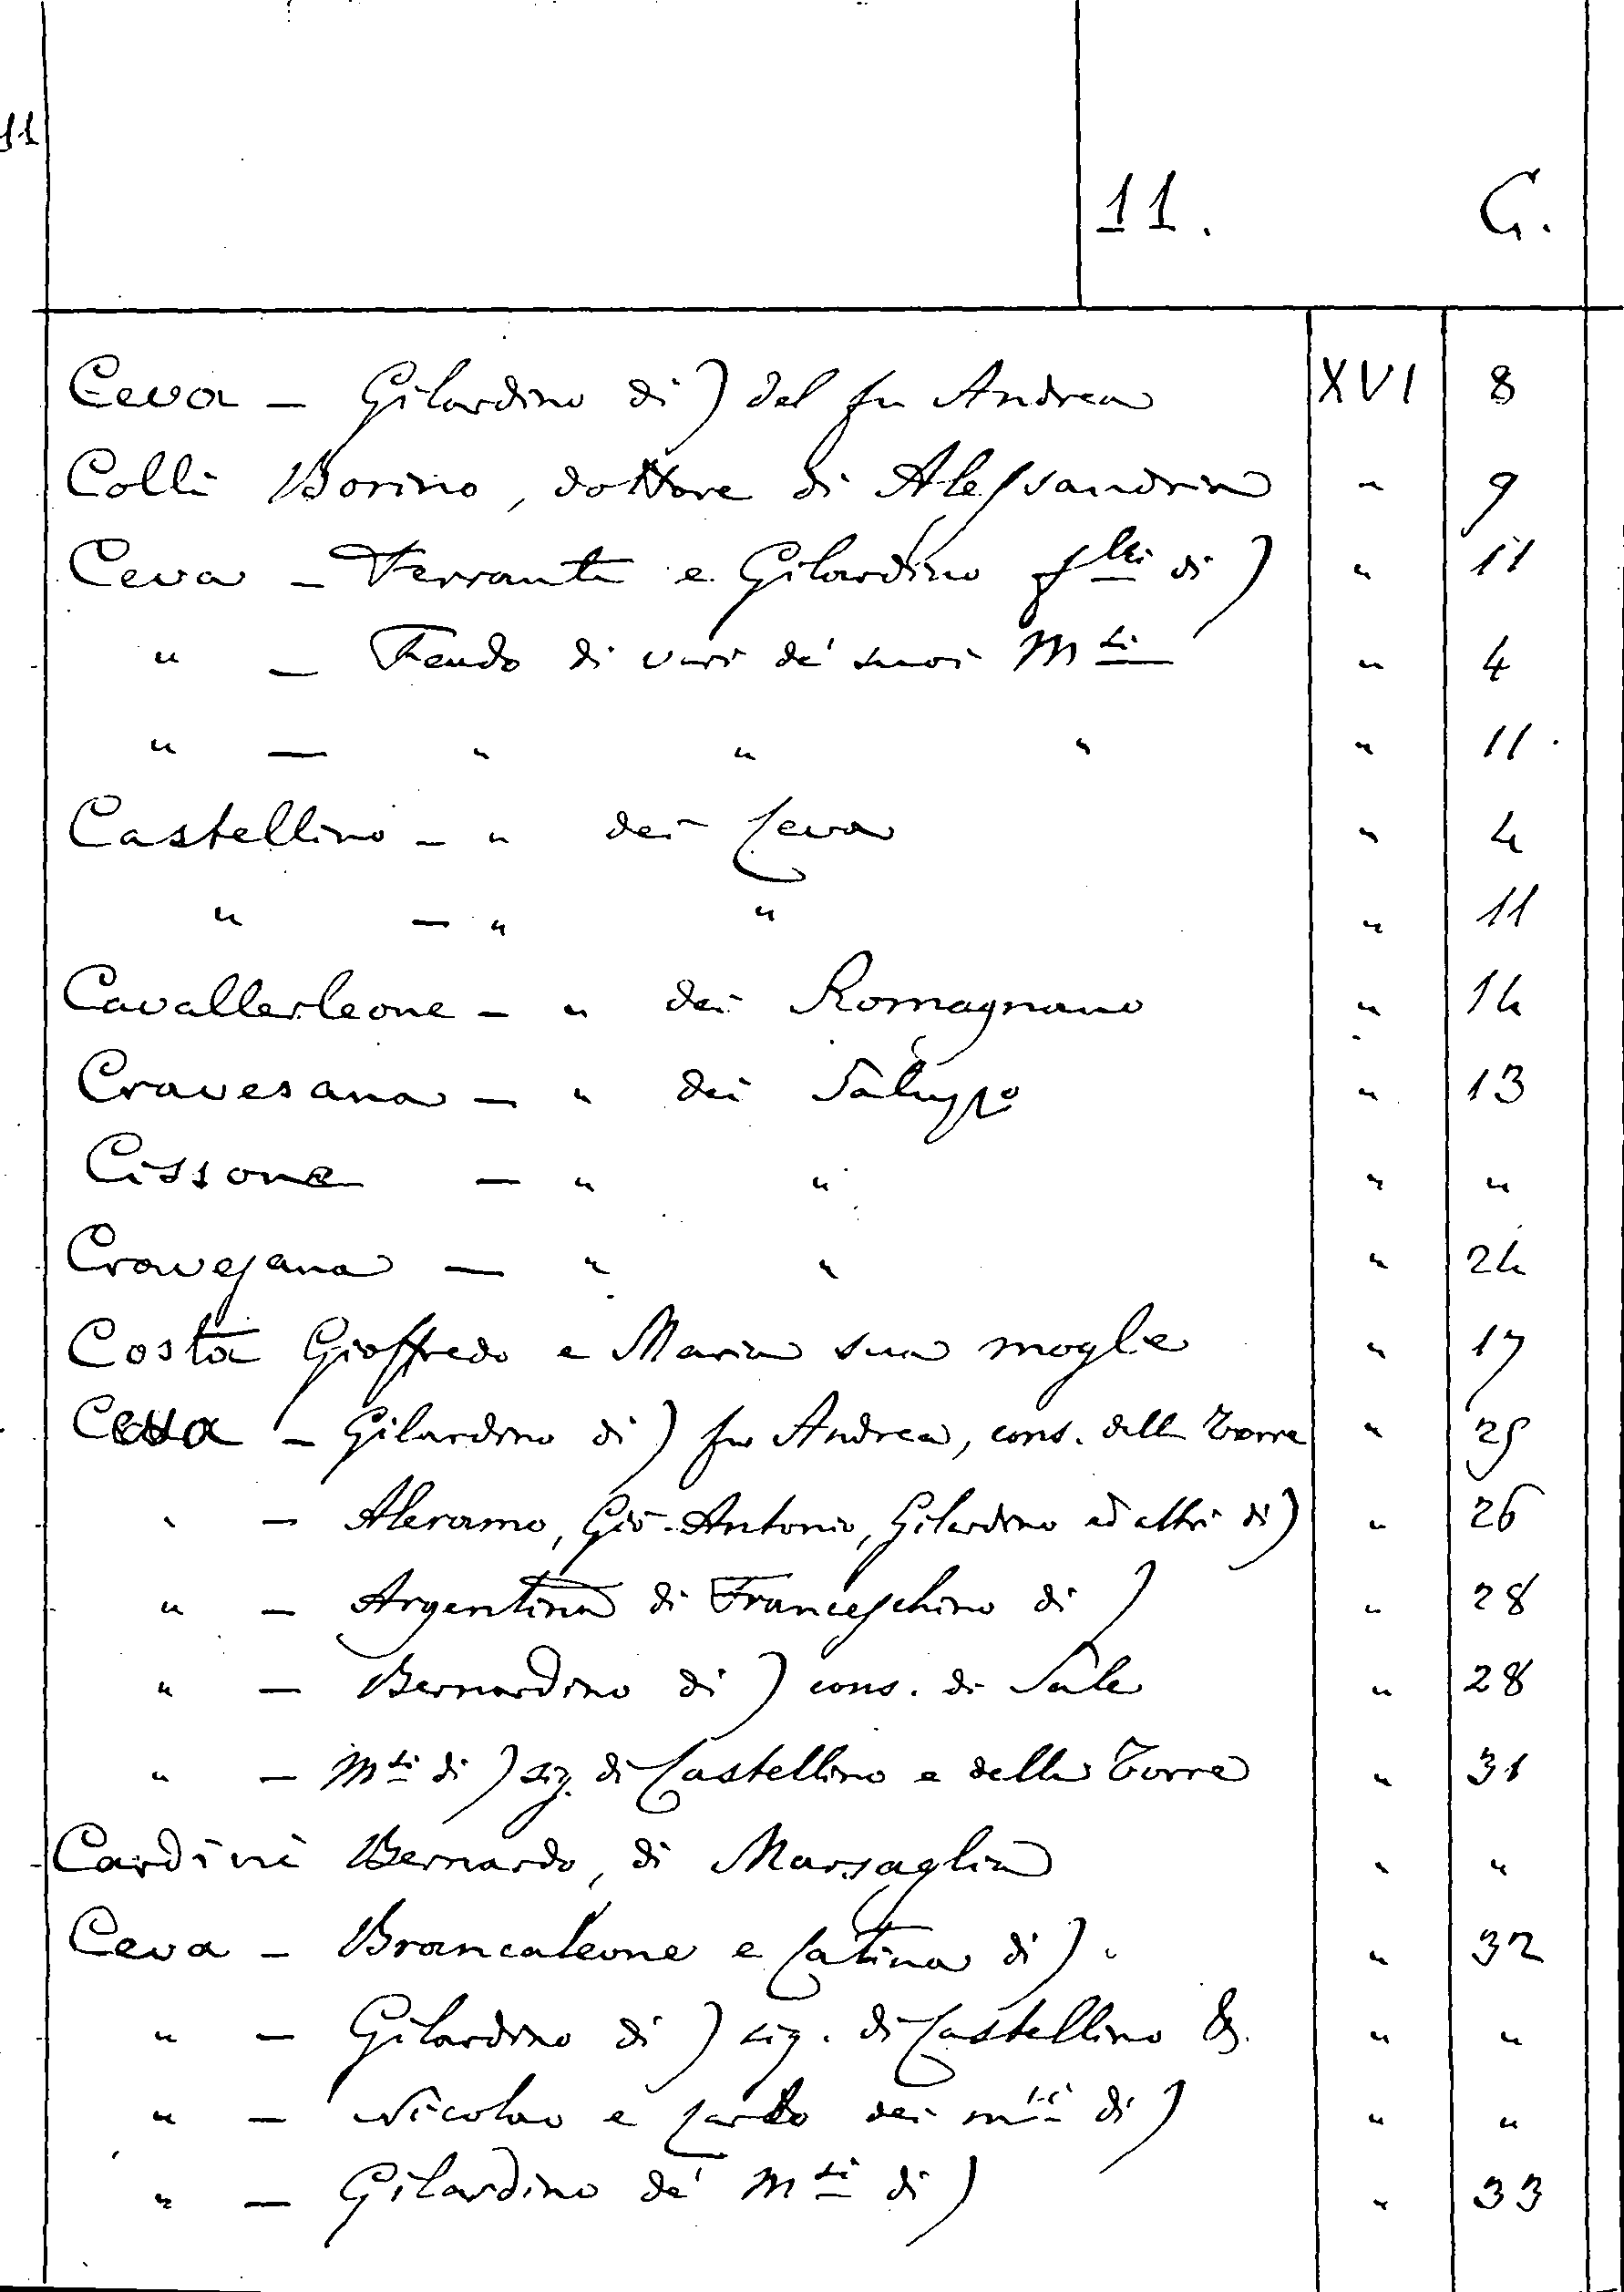 11
11. C.
Ceva - Gilardino di) del fu Andrea XVI 8
Colli Borino, dottore di Alessandria " 9
Ceva - Ferrante e Gilardino flli di) " 11
" - Feudo di vari de' suoi Msi " 4
" - " " " " 11
Castellino - " dei Ceva " 4
" - " " " 11
Cavallerleone - " dei Romagnano " 14
Cravesana - " dei Saluzzo " 13
Cissone - " " " "
Cravesana - " " " 24
Costa Gioffredo e Maria sua moglie " 17
Ceva - Gilardino di) fu Andrea, cons. della Torre " 25
" - Aleramo, Gio-Antonio, Gilardino ed altri di) " 26
" - Argentina di Franceschino di) " 28
" - Bernardino di) cons. di Sale " 28
" - Msi di) sig. di Castellino e della Torre " 31
Cardini Bernardo, di Marsaglia " "
Ceva - Brancaleone e Catina di) " 32
" - Gilardino di) sig. di Castellino &. " "
" - Nicolao e Carlo dei msi di) " "
" - Gilardino de' Msi di) " 33